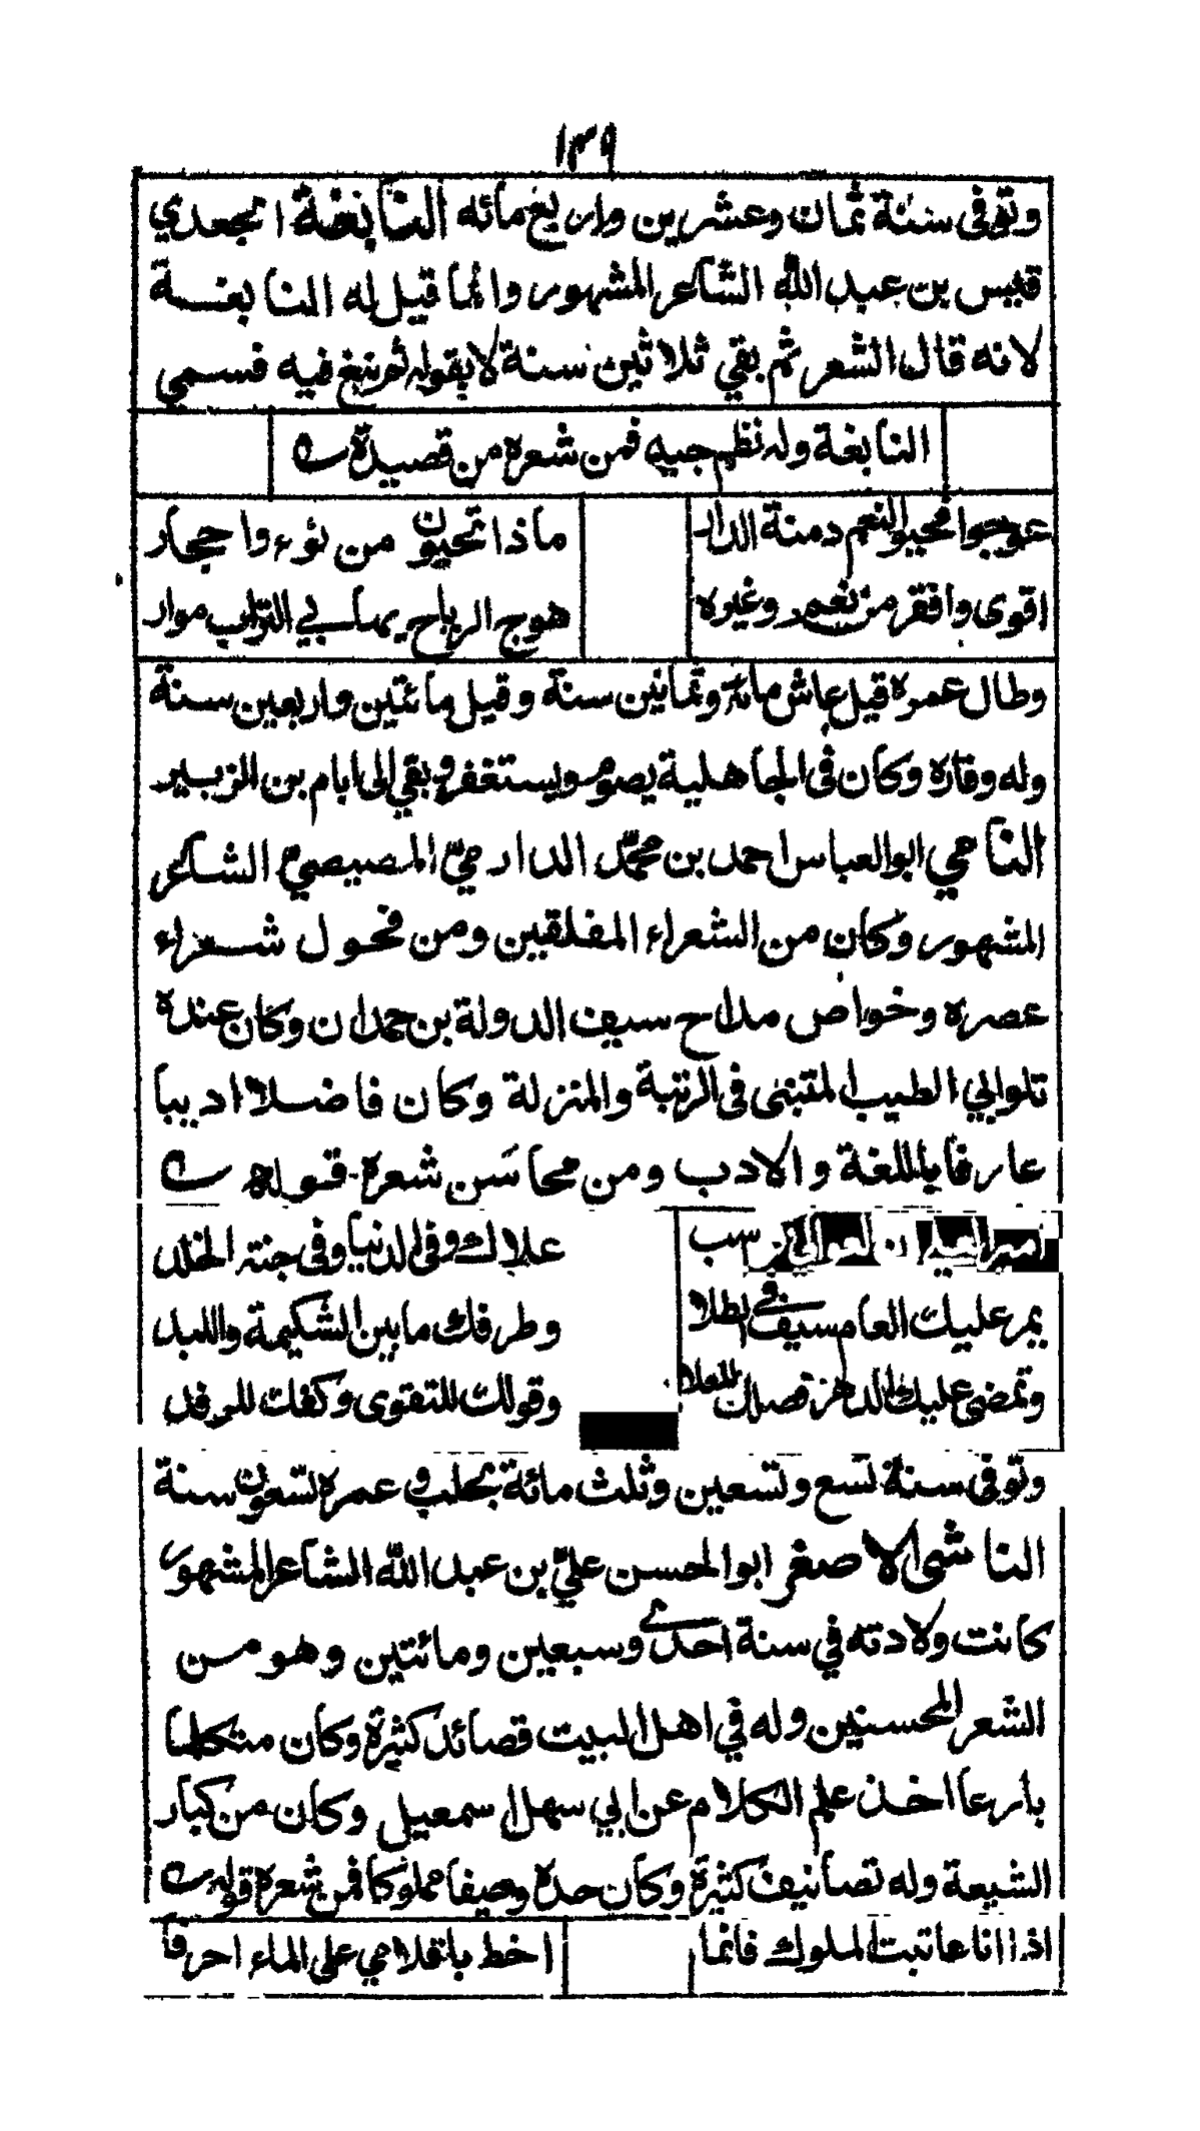 ١٣٩
وتوفى سنة ثمان وعشرين واربع مائه النابغة الجعدي
قيس بن عبد الله الشاعر المشهور وانما قيل له النابغة
لانه قال الشعر ثم بقي ثلاثين سنة لا يقوله ثم نبغ فيه فسمي
النابغة وله نظم جيد فمن شعره من قصيدة
عوجوا فحيوا لنعم دمنة الدار
ماذا تحيون من نؤء واحجار
اقوى واقفر من نعم وغيره
هوج الرياح بهابي الترب موار
وطال عمره قيل عاش مائة وثمانين سنة وقيل مائتين واربعين سنة
وله وفاره وكان فى الجاهلية يصوم ويستغفر وبقي الى ايام بن الزبير
النامي ابو العباس احمد بن محمد الدارمي المصيصي الشاعر
المشهور وكان من الشعراء المفلقين ومن فحول شعراء
عصره وخواص مداح سيف الدولة بن حمدان وكان عنده
تلو ابي الطيب المتبنى فى الرتبة والمنزلة وكان فاضلا اديبا
عارفا باللغة والادب ومن محاسن شعره قوله
امير العوالي
علاك وفى الدنيا وفى جنته الخلد
يمر عليك العام سيفك فى الطلا
وطرفك مابين الشكيمة واللبد
وتمضى عليك الدهر فصلك للعلا
وقولك للتقوى وكفك للرفد
وتوفى سنة تسع وتسعين وثلث مائة بحلب و عمره تسعون سنة
الناشى الاصغر ابو الحسن علي بن عبد الله الشاعر المشهور
كانت ولادته في سنة احدى وسبعين ومائتين وهو من
الشعر المحسنين وله في اهل البيت قصائد كثيرة وكان متكلما
بارعا اخذ علم الكلام عن ابي سهل سمعيل وكان من كبار
الشيعة وله تصانيف كثيرة وكان حده وصيفا مملوكا فمن شعره قوله
اذا انا عاتبت الملوك فانما
اخط باقلامي على الماء احرفا